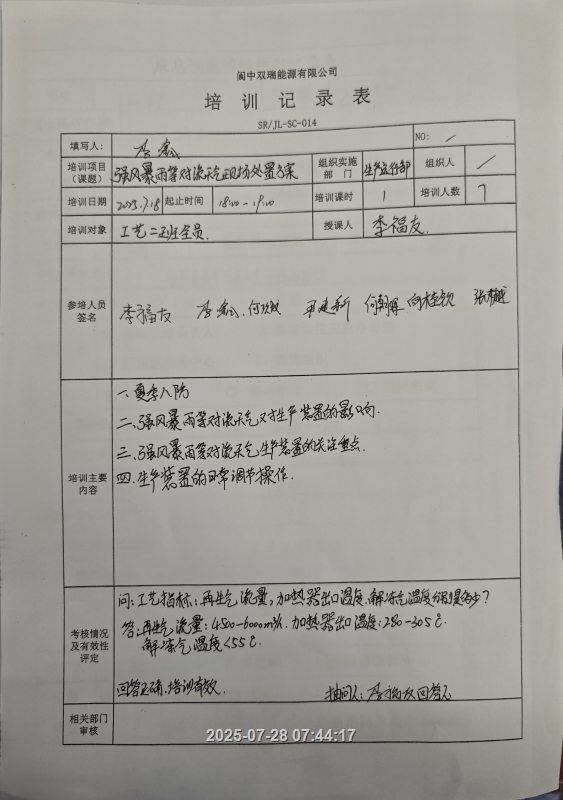 阆中双瑞能源有限公司
培训记录表
SR/JL-SC-014
填写人: NO: /
培训项目(课题) 强风暴雨等对流天气现场处置方案 组织实施部门 生产运行部 组织人 /
培训日期 2025.7.18 起止时间 18:00-19:00 培训课时 1 培训人数 7
培训对象 工艺二班全员. 授课人 李福友.
参培人员签名 李福友 何欢欢 何朝晖 向桂钦
培训主要内容
一.夏季八防
二.强风暴雨等对流天气对生产装置的影响.
三.强风暴雨等对流天气生产装置的关注重点.
四.生产装置的日常调节操作.
考核情况及有效性评定
问:工艺指标:再生气流量,加热器出口温度,解冻气温度分别是多少?
答:再生气流量:4500-6000m³/h.加热器出口温度:280-305℃.
解冻气温度<55℃.
回答正确,培训有效. 抽问人:李福友 回答人
相关部门审核
2025-07-28 07:44:17